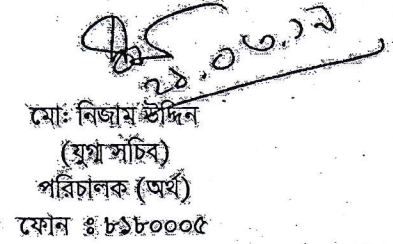 ২১.০৩.১২
মো: নিজাম উদ্দিন
(যুগ্ম সচিব)
পরিচালক (অর্থ)
ফোন ঃ ৮১৮০০০৫